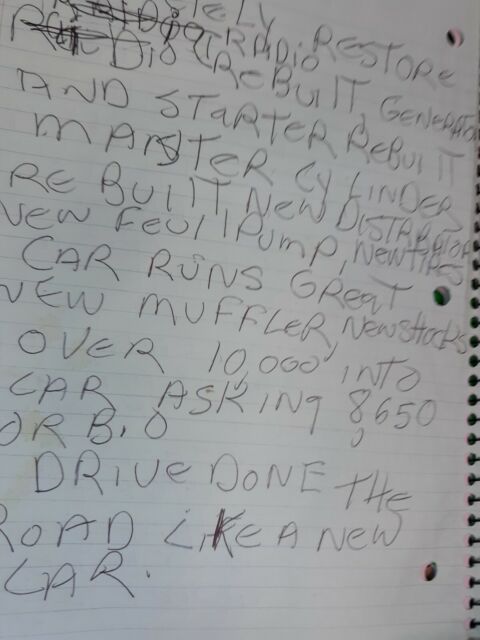 RADIO RESTORE
REBUILT, GENERATOR
AND STARTER REBUILT
MASTER CYLINDER
REBUILT NEW DISTRIBATOR
NEW FEUL PUMP, NEWTIRES
CAR RUNS GREAT
NEW MUFFLER, NEWSHOCKS
OVER 10,000 INTO
CAR ASKING 8,650
OR B.O
DRIVE DONE THE
ROAD LIKE A NEW
CAR.